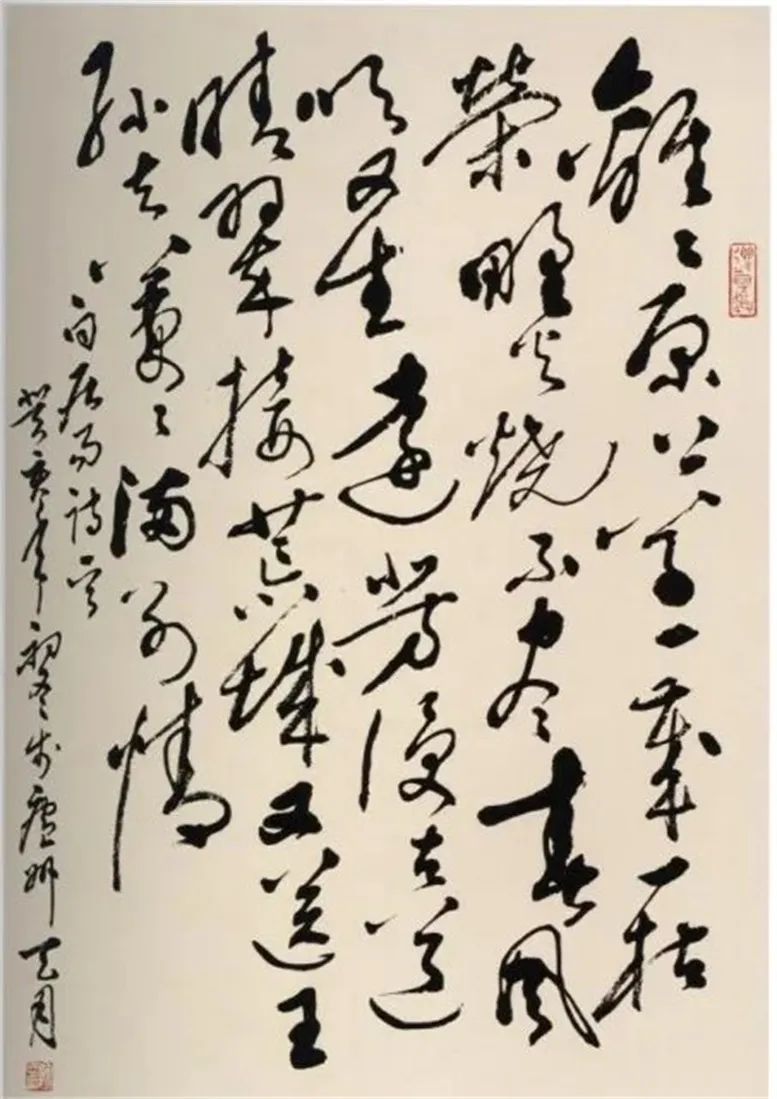 離々原上草一歲一枯
榮野火燒不尽春風
吹又生遠芳侵古道
晴翠接荒城又送王
孫去萋々滿別情
白居易诗
癸亥年初冬於廬州